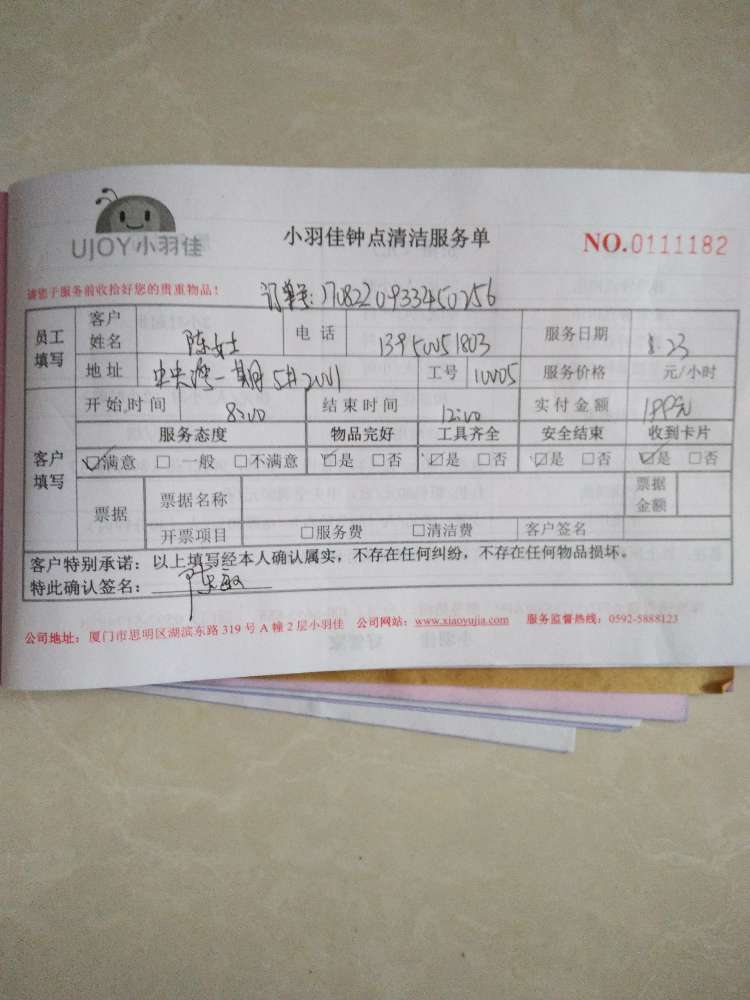 UJOY小羽佳
小羽佳钟点清洁服务单
NO.0111182
请您于服务前收拾好您的贵重物品！
订单号：1708220933450256
员工填写 客户姓名 陈女士 电话 13950051803 服务日期 8.23
地址 中央湾一期5#2001 工号 10005 服务价格 元/小时
客户填写 开始时间 8:00 结束时间 12:00 实付金额
服务态度 物品完好 工具齐全 安全结束 收到卡片
☑满意 □一般 □不满意 ☑是 □否 ☑是 □否 ☑是 □否 ☑是 □否
票据 票据名称 票据金额
开票项目 □服务费 □清洁费 客户签名
客户特别承诺：以上填写经本人确认属实，不存在任何纠纷，不存在任何物品损坏。
特此确认签名：陈敏
公司地址：厦门市思明区湖滨东路319号A幢2层小羽佳 公司网站：www.xiaoyujia.com 服务监督热线：0592-5888123